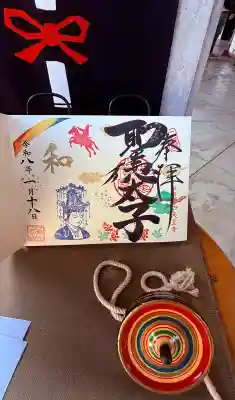 奉拝
聖徳太子
和
令和八年一月十八日